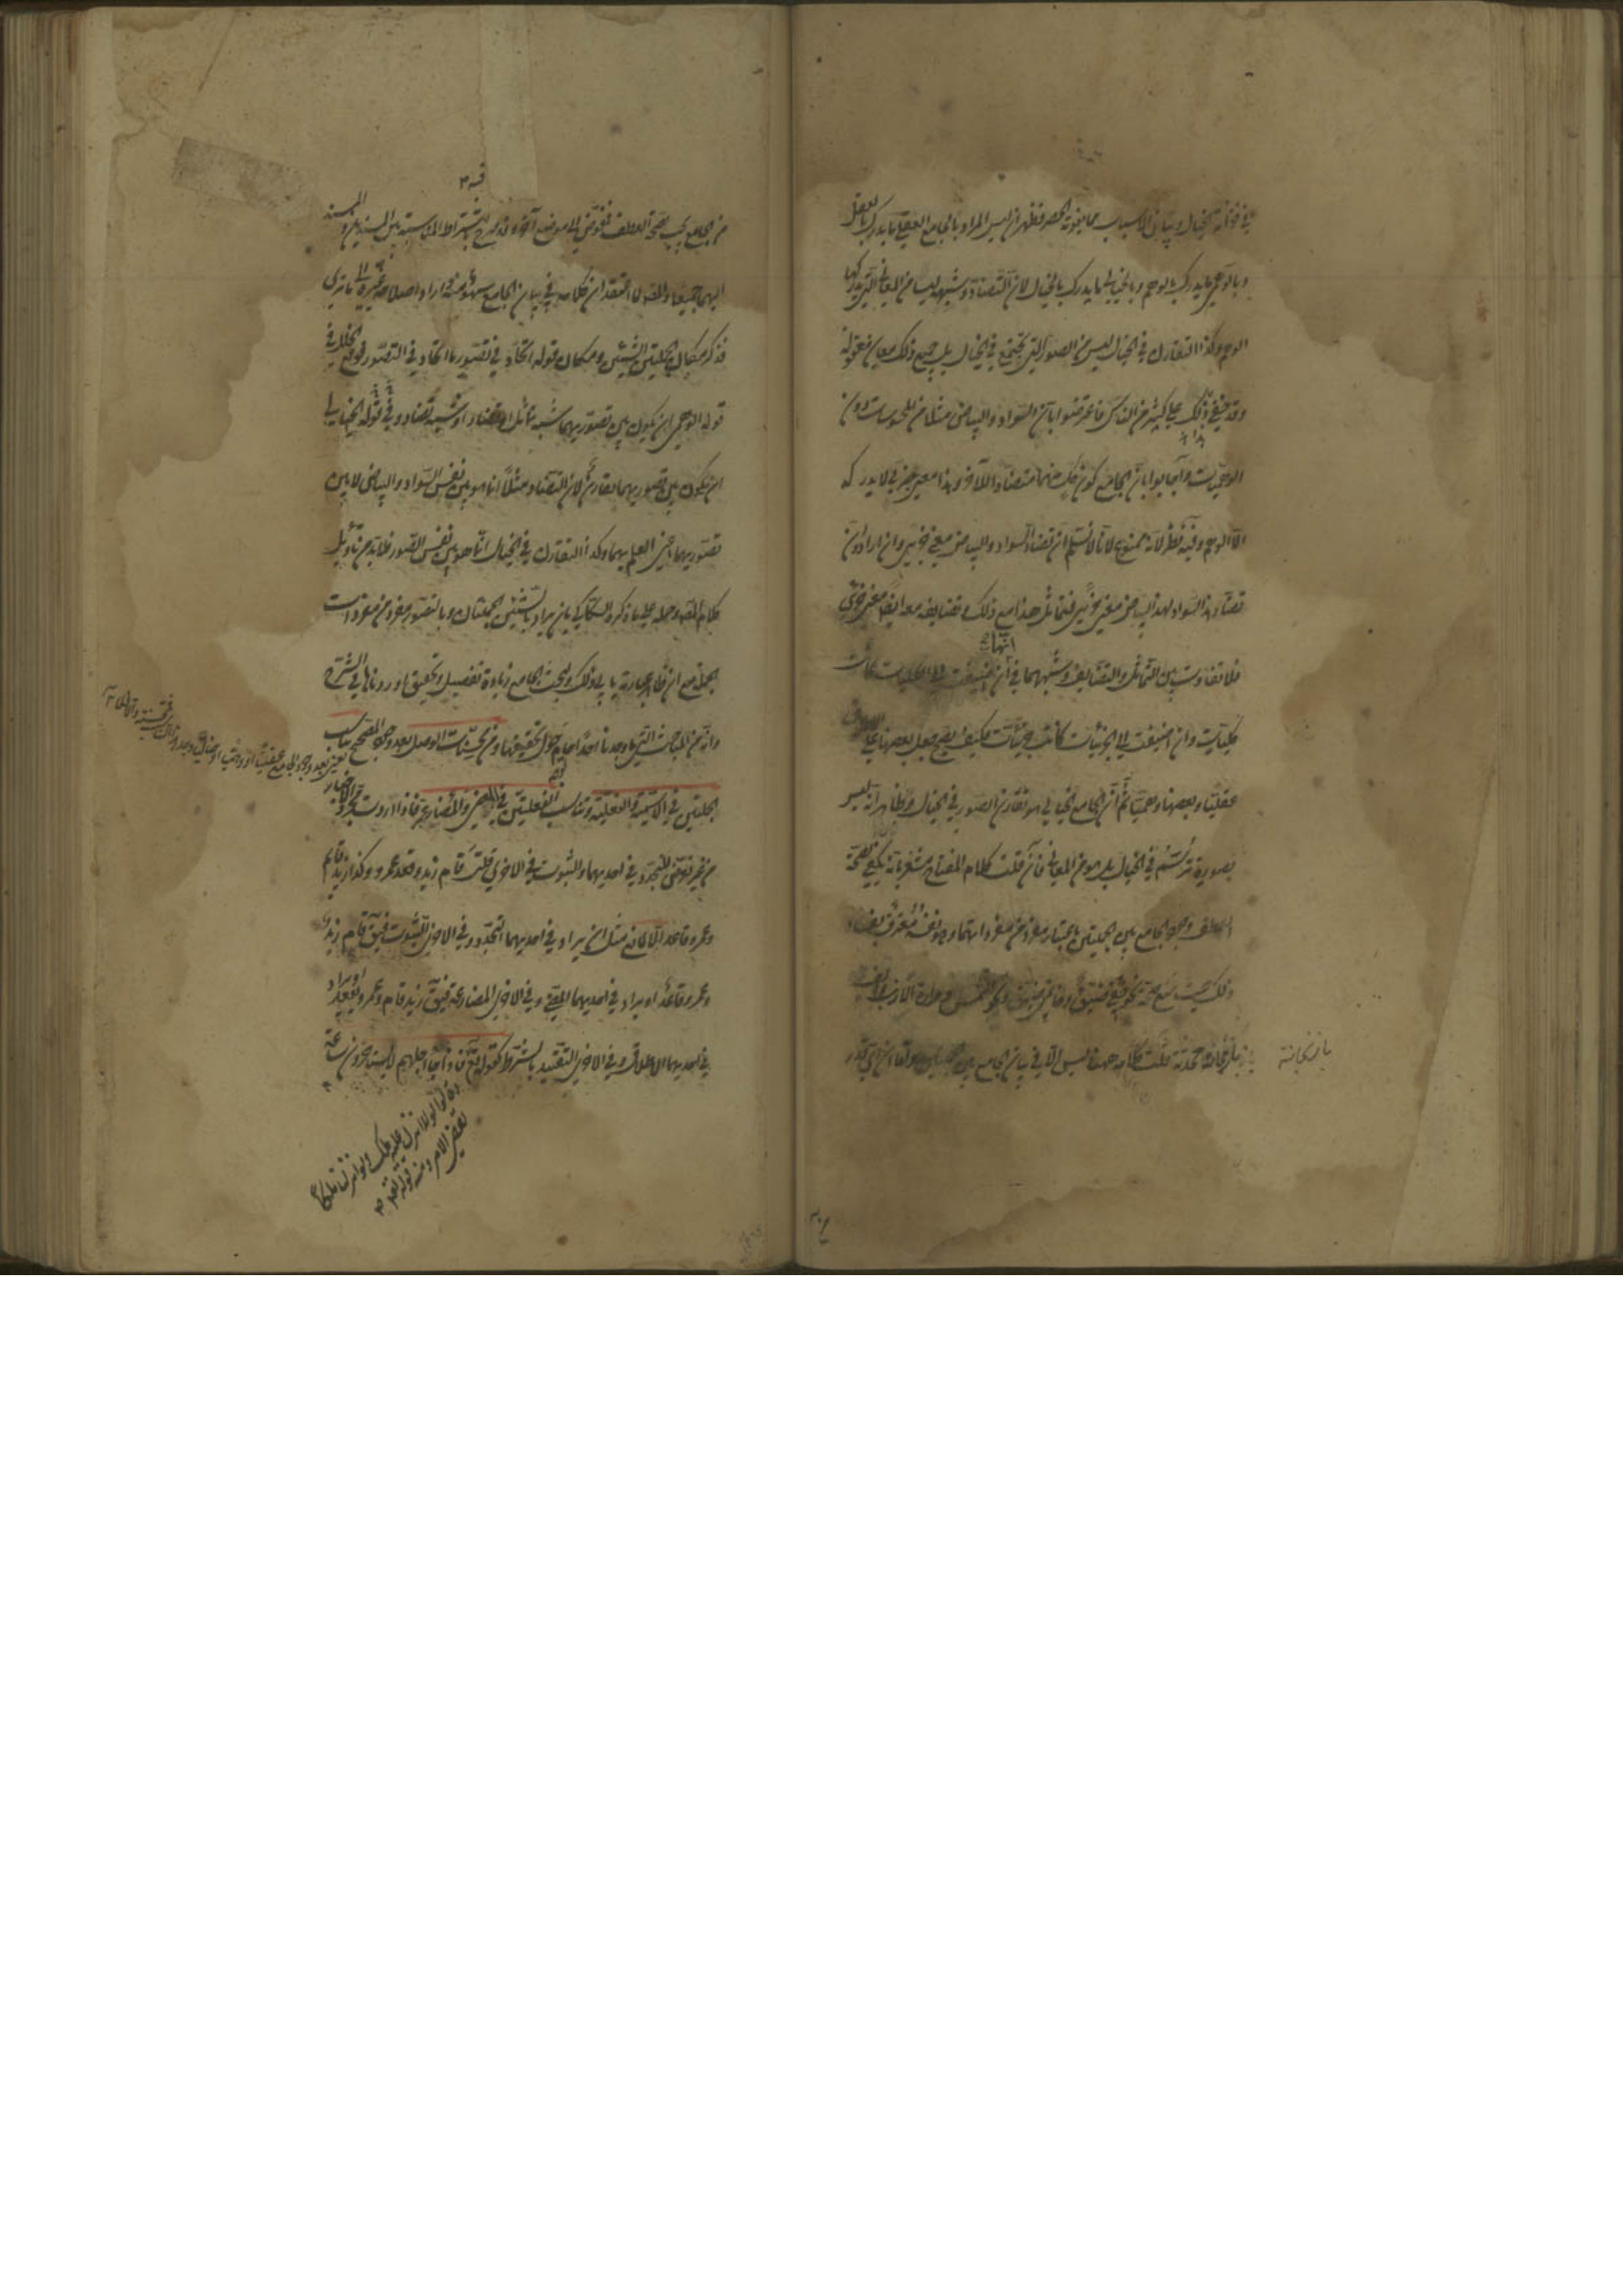 في خزانة الخيال وتباين الاسباب مما يفوته الحصر فظهر ان ليس المراد بالجامع العقلي ما يدرك بالعقل
وبالوهمي ما يدرك بالوهم وبالخيالي ما يدرك بالخيال لان التضاد وشبهه ليسا من المعاني التي يدركها
الوهم وكذا التقارن في الخيال ليس من الصور التي تجتمع في الخيال بل جميع ذلك معان معقولة
وقد خفي ذلك على كثير من الناس فاعترضوا بان السواد والبياض مثلا من المحسوسات دون
الوهميات واجابوا بان الجامع كون كل منهما متضادا للآخر وهذا معنى جزئي لا يدركه
الا الوهم وفيه نظر لانه ممنوع لانا لا نسلم ان تضاد السواد والبياض معنى جزئي وان ارادوا ان
تضاد هذا السواد لهذا البياض معنى جزئي فتماثل هذا مع ذلك وتضايفه معه ايضا معنى جزئي
فلا تفاوت بين التماثل والتضايف وشبههما في انها ان اضيفت الى الكليات كانت
كليات وان اضيفت الى الجزئيات كانت جزئيات فكيف يصح جعل بعضها على الاطلاق
عقليا وبعضها وهميا ثم ان الجامع الخيالي هو تقارن الصور في الخيال وظاهر انه ليس
بصورة ترتسم في الخيال بل هو من المعاني فان قلت كلام المفتاح مشعر بانه يكفي لصحة
العطف وجود الجامع بين الجملتين باعتبار مفرد من مفرداتهما وهو نفسه معترف بفساد
ذلك حيث منع صحة نحو خفي ضيق وخاتمي ضيق ونحو الشمس ومرارة الارنب والف
باذنجانة محدثة قلت كلامه ههنا ليس الا في بيان الجامع بين الجملتين واما ان اي قدر
باذنجانة
من الجامع يجب لصحة العطف فمفوض الى موضع آخر وقد صرح فيه باشتراط المناسبة بين المسندين والمسند
اليهما جميعا والمصنف لما اعتقد ان كلامه في بيان الجامع سهو منه واراد اصلاحه غيره الى ما ترى
فذكر مكان الجملتين الشيئين ومكان قوله اتحاد في تصور ما اتحاد في التصور فوقع الخلل في
قوله الوهمي ان يكون بين تصوريهما شبه تماثل او تضاد او شبه تضاد وفي قوله الخيالي
ان يكون بين تصوريهما تقارن لان التضاد مثلا انما هو بين نفس السواد والبياض لا بين
تصوريهما اعني العلم بهما وكذا التقارن في الخيال انما هو بين نفس الصور فلا بد من تأويل
كلام المصنف وحمله على ما ذكره السكاكي بان يراد بالشيئين الجملتان وبالتصور مفرد من مفردات
الجملة مع ان ظاهر عبارته يابى ذلك ولبحث الجامع زيادة تفصيل وتحقيق اوردناها في الشرح
وانه من المباحث التي ما وجدنا احدا حام حول تحقيقها ومن محسنات الوصل بعد وجود المصحح تناسب
الجملتين في الاسمية والفعلية وتناسب الفعليتين في المضي والمضارعة فاذا اردت مجرد الاخبار
من غير تعرض للتجدد في احديهما والثبوت في الاخرى قلت قام زيد وقعد عمرو وكذا زيد قائم
وعمرو قاعد الا لمانع مثل ان يراد في احديهما التجدد وفي الاخرى الثبوت فيق قام زيد
وعمرو قاعد او يراد في احديهما المضي وفي الاخرى المضارعة فيق زيد قام وعمرو يقعد او يراد
في احديهما الاطلاق وفي الاخرى التقييد بالشرط كقوله تع فاذا جاء اجلهم لا يستأخرون ساعة
وقالوا لولا انزل عليه ملك ولو انزلنا ملكا
لقضي الامر ومنه قوله تع